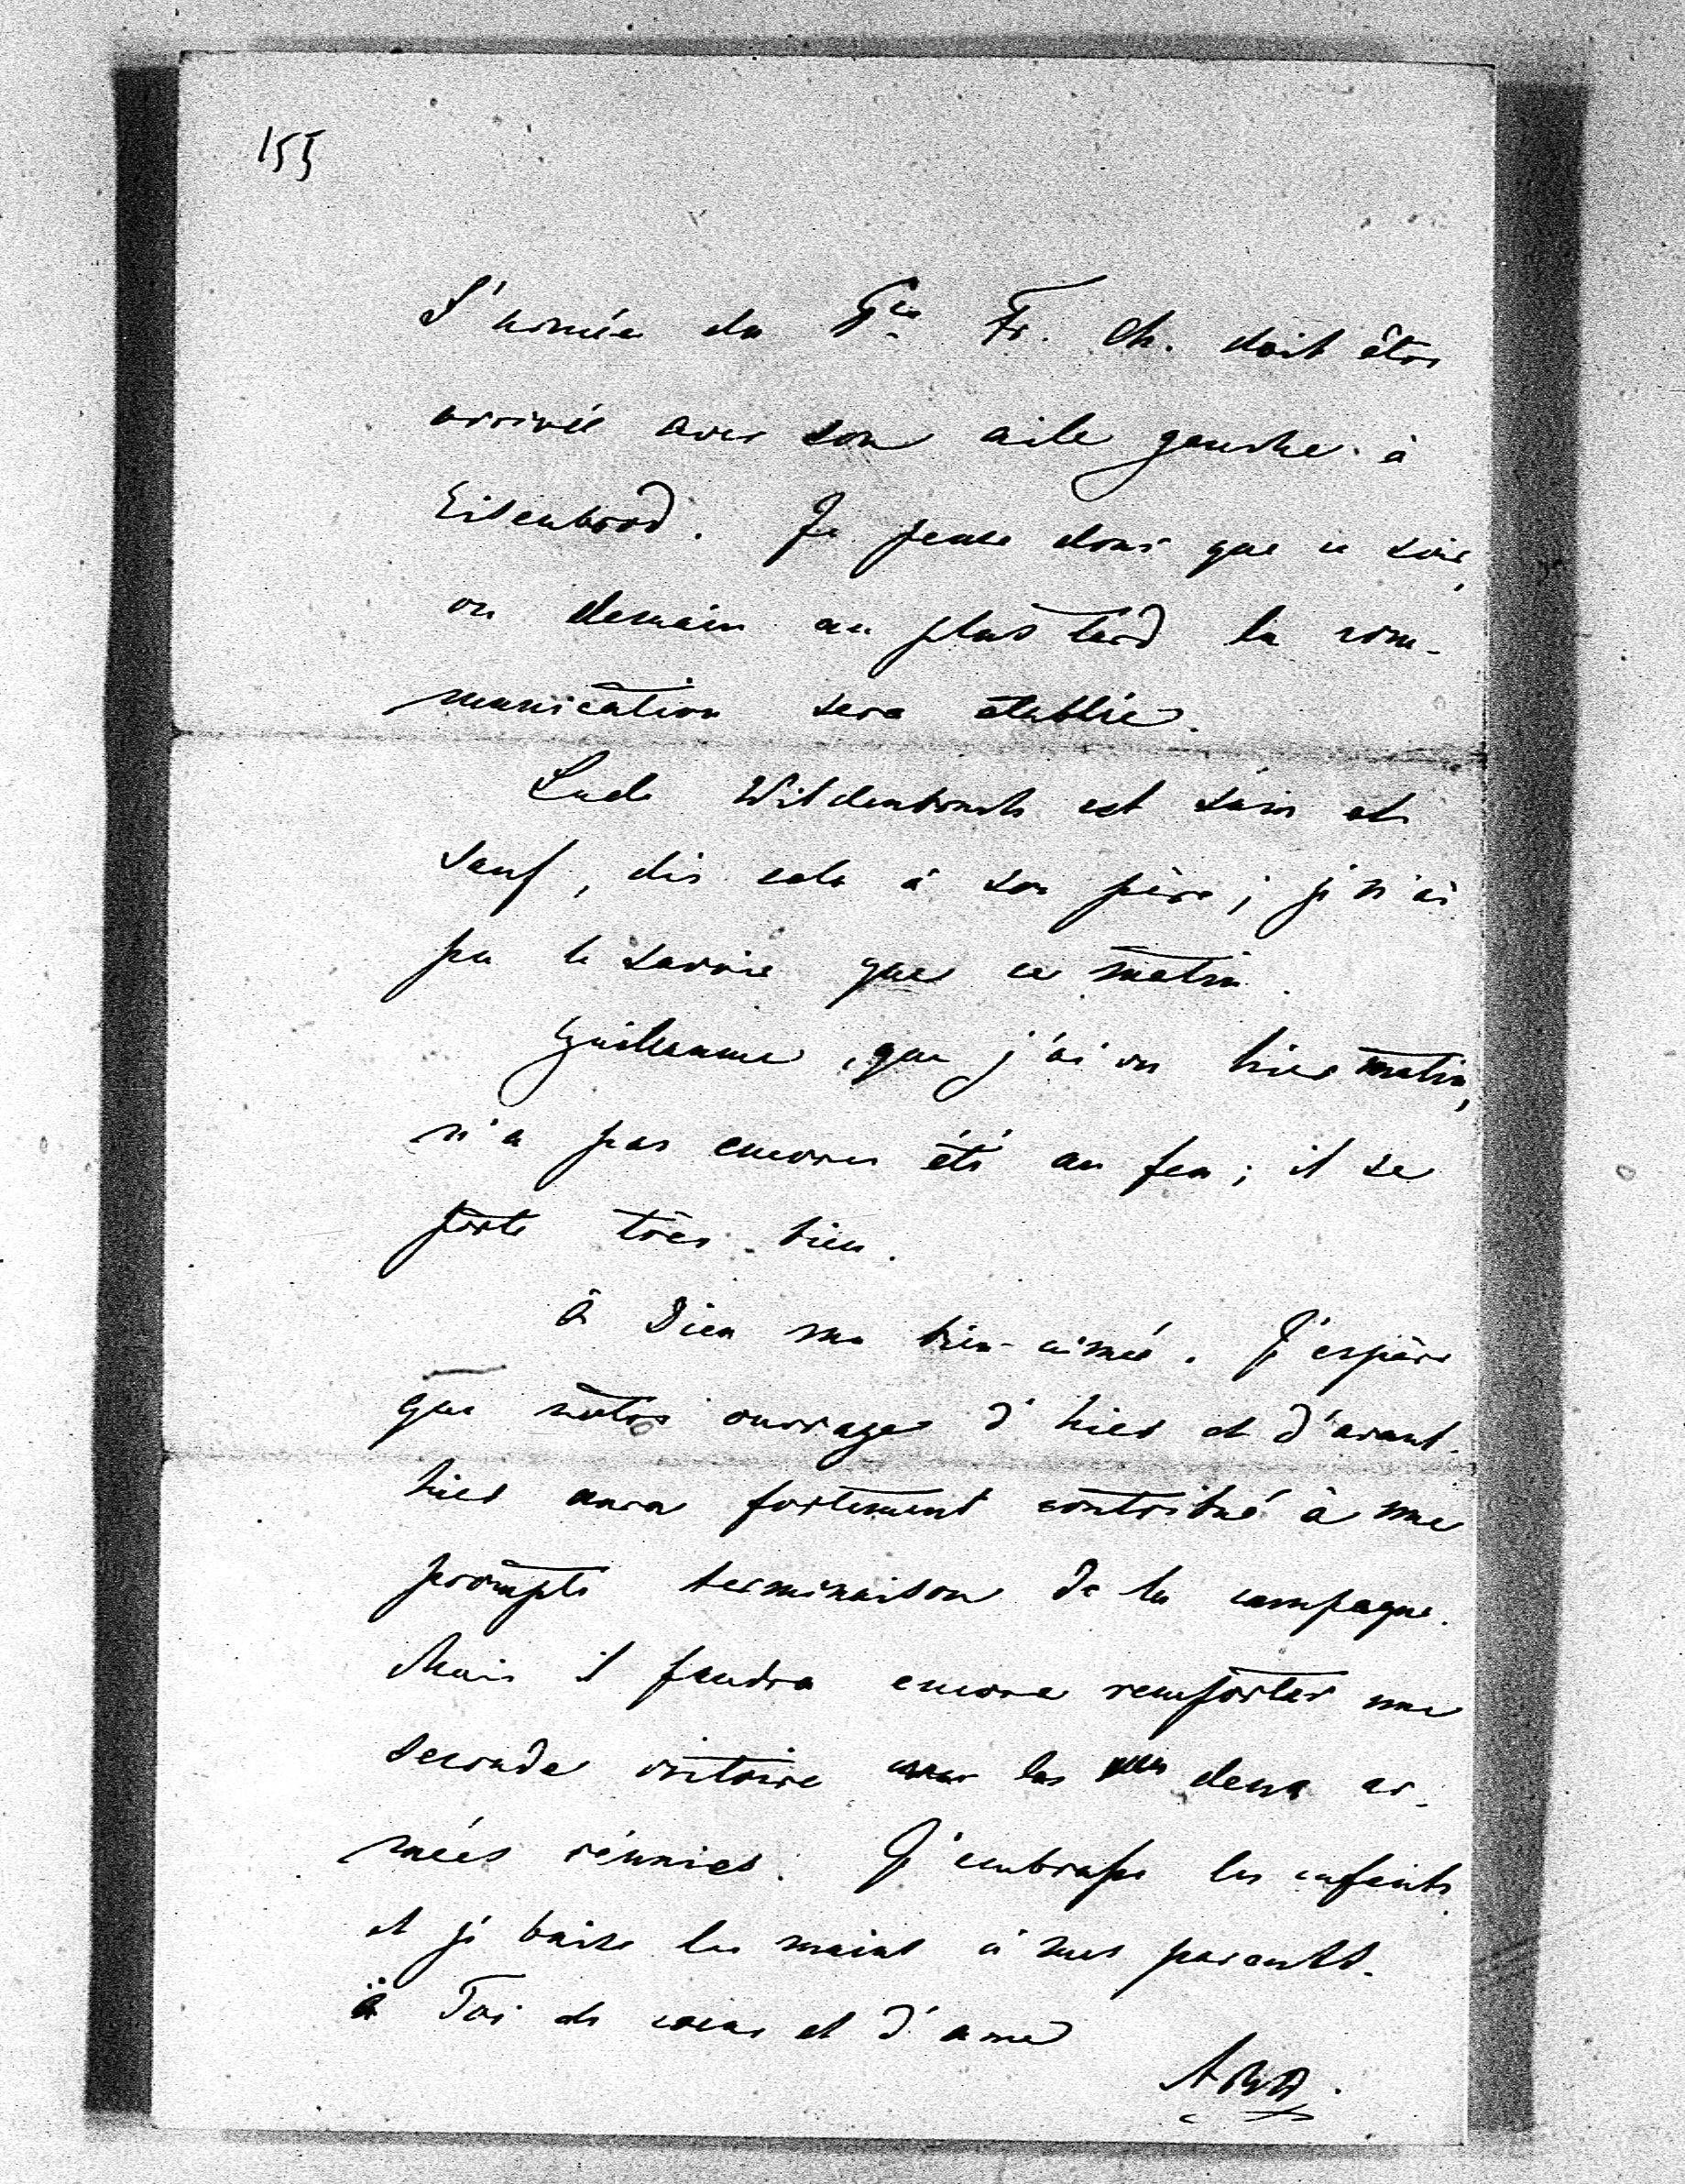 155
L'armée du Pce Fr. Ch. doit être
arrivée avec son aile gauche à
Eisenbrod. Je pense donc que ce soir,
ou demain au plus tard la com-
munication sera établie.
Wildenbruch est sain et
sauf, dis cela à son père; je n'ai
pu le savoir que ce matin.
Guillaume, que j'ai vu hier matin,
n'a pas encore été au feu; il se
porte très bien.
à Dieu ma bien-aimée. J'espère
que notre ouvrage d'hier et d'avant-
hier aura fortement contribué à une
prompte terminaison de la campagne.
Mais il faudra encore remporter une
seconde victoire les deux ar-
mées réunies. J'embrasse les enfants
et je baise les mains à mes parents.
à Toi de coeur et d'ame